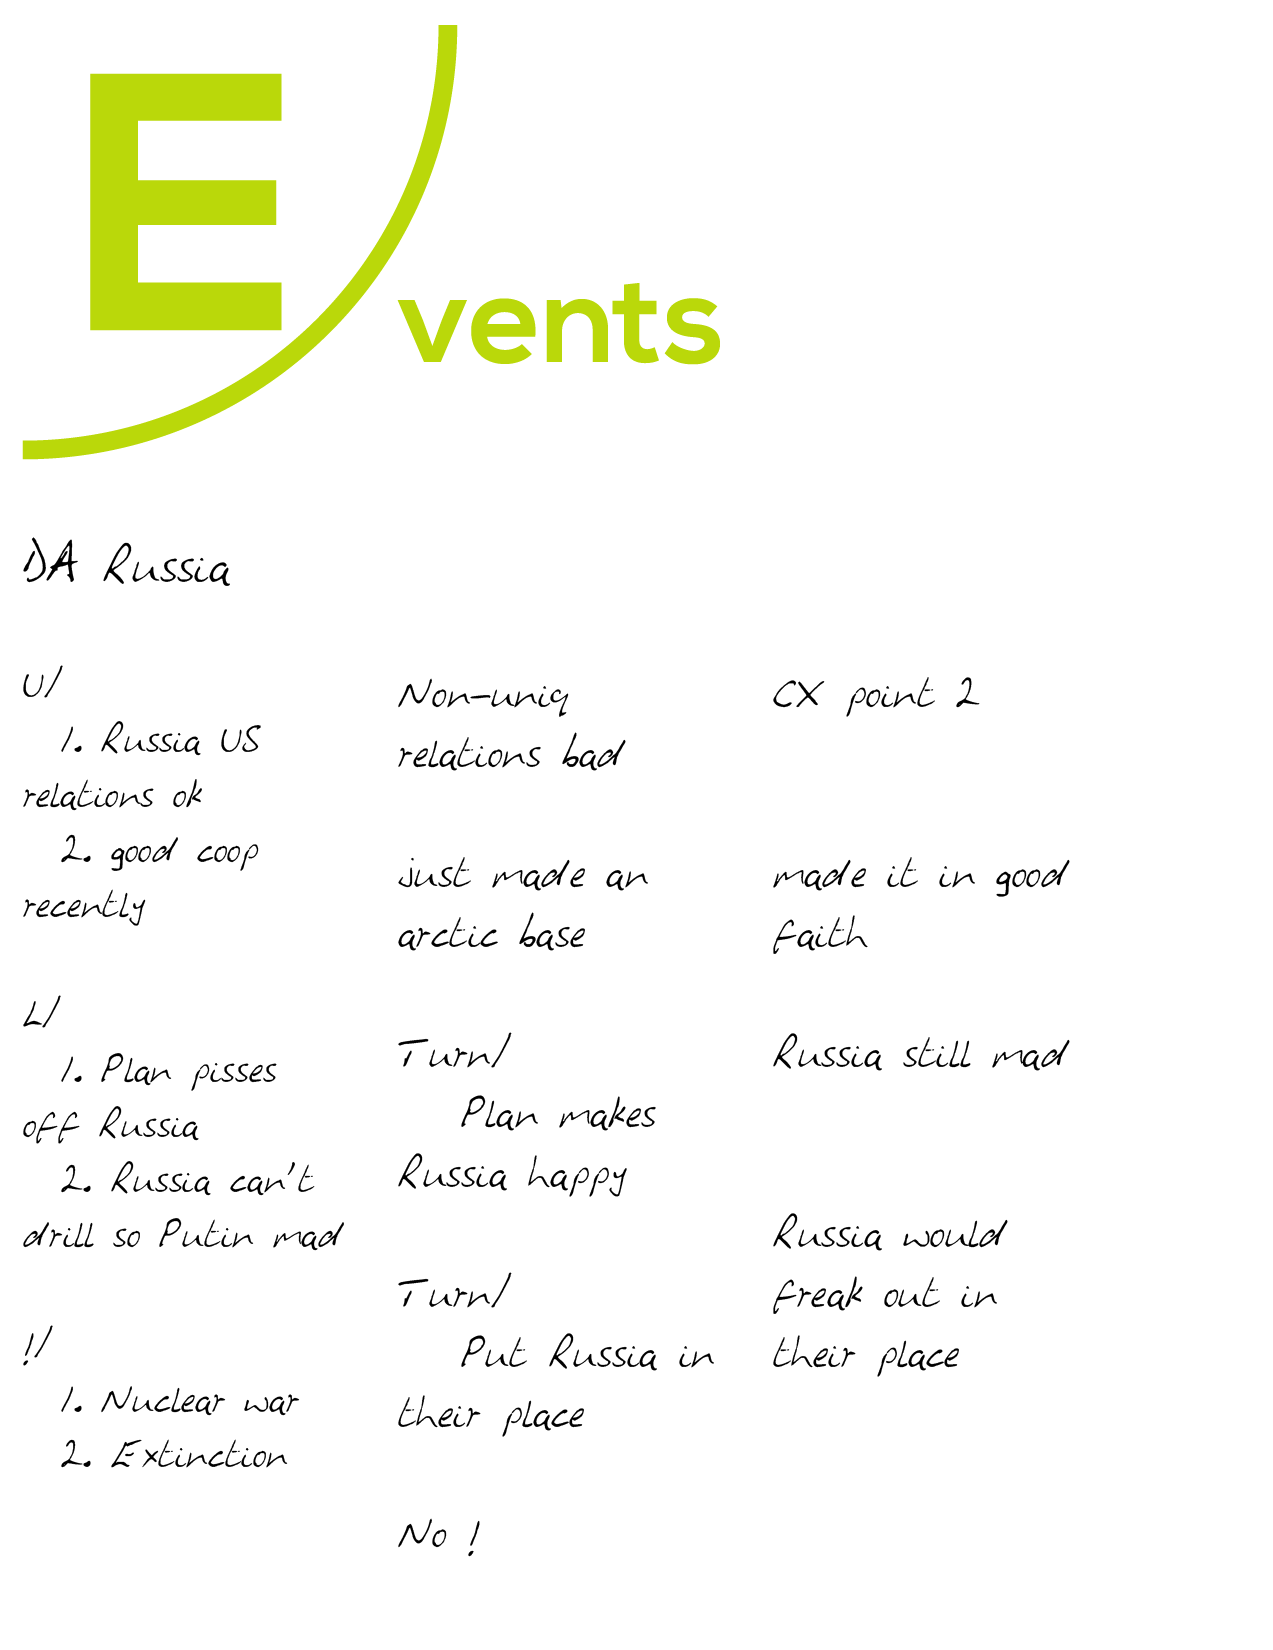 Events
DA Russia
U/
1. Russia US
relations ok
2. good coop
recently
L/
1. Plan pisses
off Russia
2. Russia can't
drill so Putin mad
!/
1. Nuclear war
2. Extinction
Non-uniq
relations bad
just made an
arctic base
Turn/
Plan makes
Russia happy
Turn/
Put Russia in
their place
No !
CX point 2
made it in good
faith
Russia still mad
Russia would
freak out in
their place